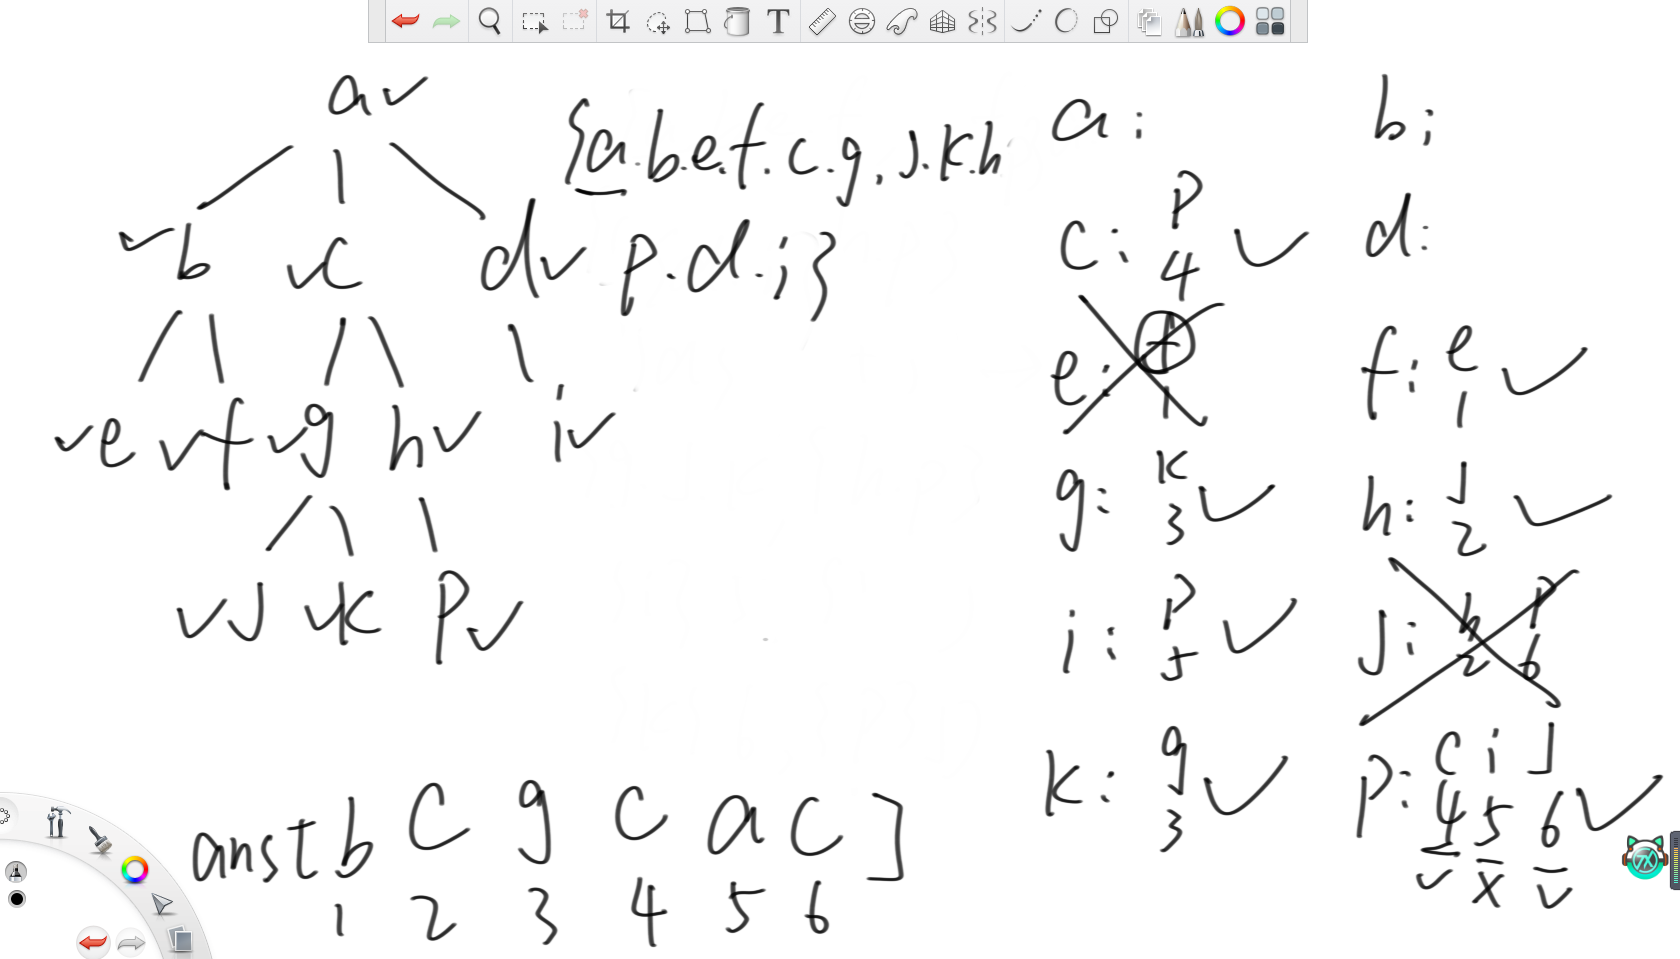 a
{a.b.e.f.c.g.j.k.h
p.d.i}
b c d
e f g h i
j k p
ans[b c g c a c]
1 2 3 4 5 6
a:
b:
c: p
4
d:
e: f
1
f: e
1
g: k
3
h: j
2
i: p
5
j: h p
2 6
k: g
3
p: c i j
4 5 6
v x v
T
7X